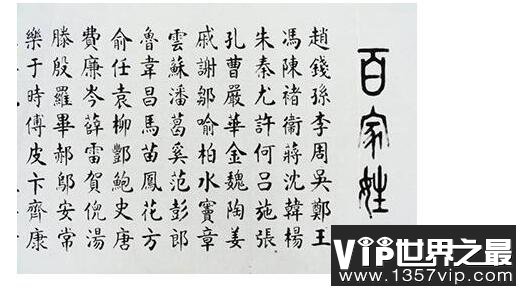 百家姓
趙錢孫李周吳鄭王
馮陳褚衛蔣沈韓楊
朱秦尤許何呂施張
孔曹嚴華金魏陶姜
戚謝鄒喻柏水竇章
雲蘇潘葛奚范彭郎
魯韋昌馬苗鳳花方
俞任袁柳酆鮑史唐
費廉岑薛雷賀倪湯
滕殷羅畢郝鄔安常
樂于時傅皮卞齊康
VIP世界之最
www.1357vip.com